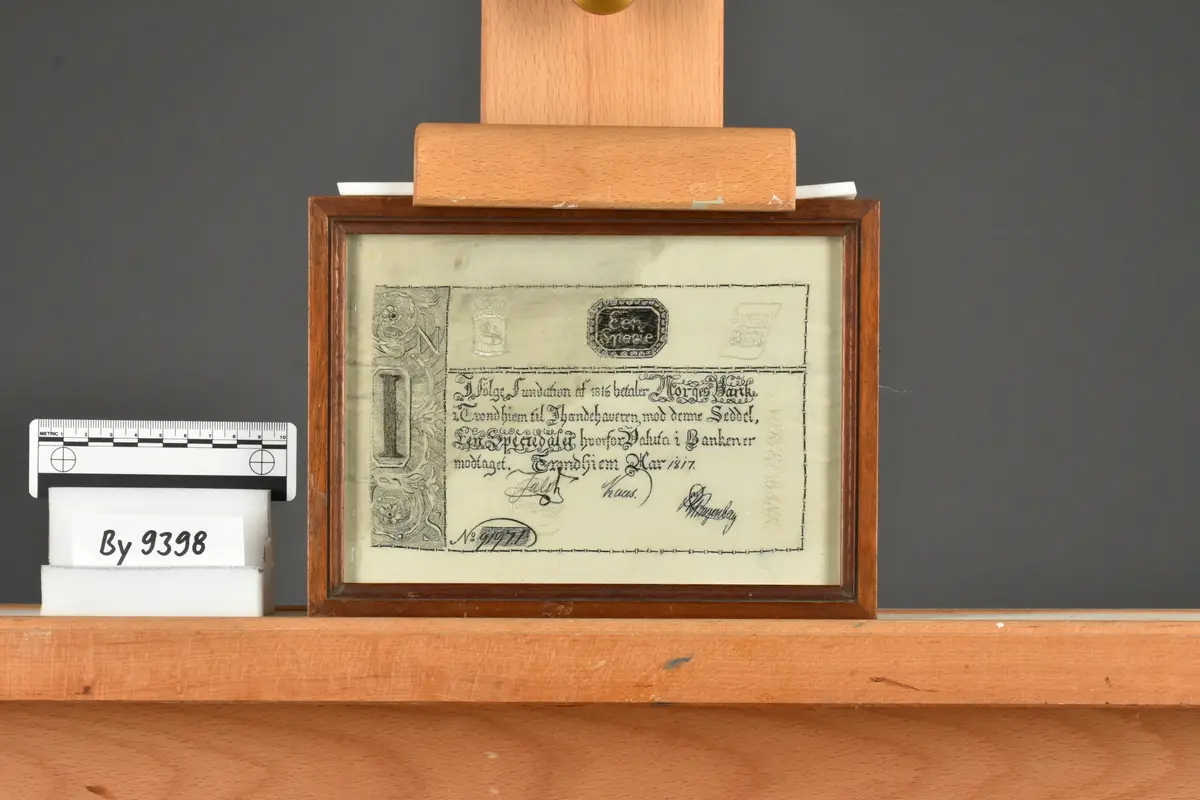 Een
Specie
I
I Følge Fundation af 1816 betaler Norges Bank
i Trondhiem til Ihændehaveren, mod denne Seddel,
Een Speciedaler hvorfor Valuta i Banken er
modtaget. Trondhiem Aar 1817.
No 91971
METRIC 1 2 3 4 5 6 7 8 9 10
By 9398